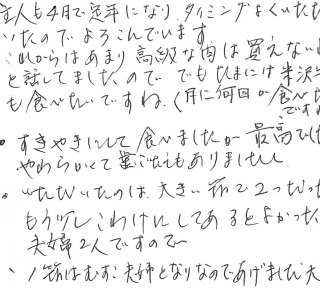 主人も4月で定年になり、タイミングよくいただ
いたのでよろこんでいます。
これからはあまり高級な肉は買えない
と話してましたので でもたまには米沢牛
も食べたいですね、(月に何回か食べた
ですね
・すきやきにして食べましたが最高でした
やわらかくて歯ごたえもありましたし
・いただいたのは、大きい箱で2つだった
もう少しこわけにしてあるとよかった
夫婦2人ですので
、1箱はむすこ夫婦となりなのであげました大